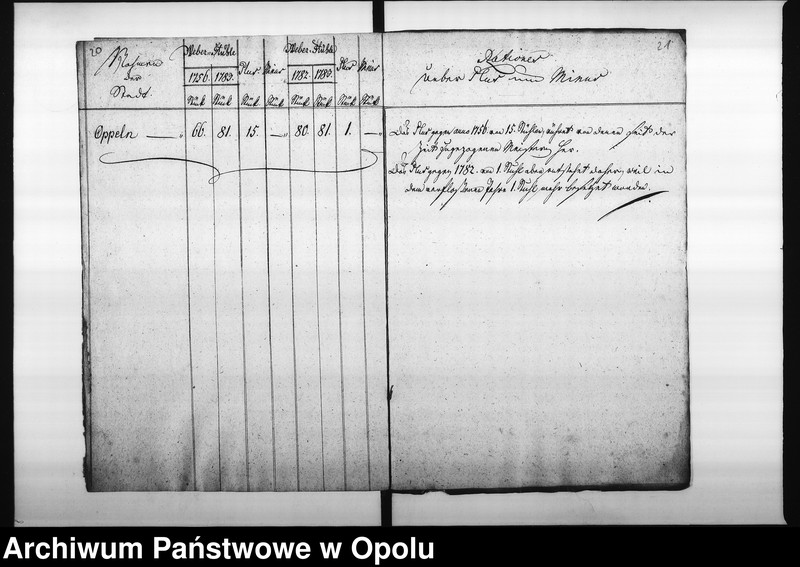 20
21
Nahmen
der
Stadt.
Weber-Stühle
1756. 1783.
Stück Stück
Plus
Stück
Minus
Stück
Weber-Stühle
1782. 1783.
Stück Stück
Plus
Stück
Minus
Stück
Rationes
ueber Plus und Minus
Oppeln — " 66. 81. 15. — " 80. 81. 1. — "
Das Plus gegen anno 1756 von 15. Stühlen, rühret von denen seit der
Zeit zugezogenen Meistern her.
Das Plus gegen 1782. von 1. Stuhl aber entstehet daher, weil in
dem verfloßenen Jahre 1. Stuhl mehr besetzet worden.
Archiwum Państwowe w Opolu